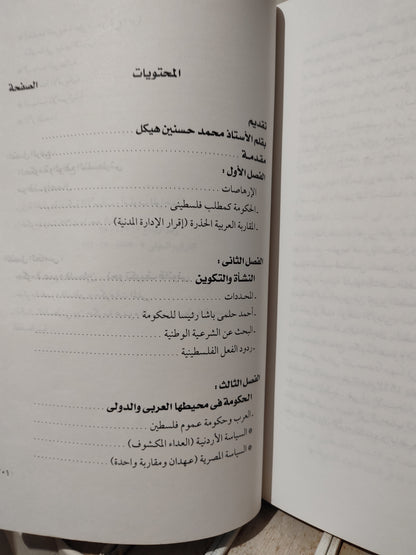 المحتويات
الصفحة
تقديم
بقلم الأستاذ محمد حسنين هيكل
مقدمة
الفصل الأول :
الإرهاصات
. الحكومة كمطلب فلسطينى
. المقاربة العربية الحذرة (إقرار الإدارة المدنية)
الفصل الثانى :
النشأة والتكوين
. المحددات
. أحمد حلمى باشا رئيسا للحكومة
. البحث عن الشرعية الوطنية
. ردود الفعل الفلسطينية
الفصل الثالث :
الحكومة فى محيطها العربى والدولى
. العرب وحكومة عموم فلسطين
* السياسة الأردنية (العداء المكشوف)
* السياسة المصرية (عهدان ومقاربة واحدة)